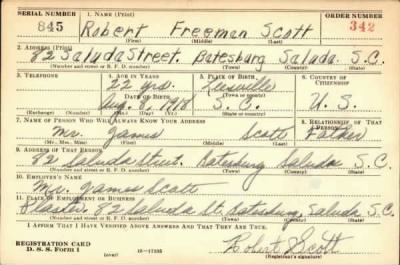 SERIAL NUMBER 1. NAME (Print) ORDER NUMBER
845 Robert Freeman Scott 342
(First) (Middle) (Last)
2. ADDRESS (Print)
82 Saluda Street. Batesburg Saluda. S.C.
(Number and street or R. F. D. number) (Town) (County) (State)
3. TELEPHONE 4. AGE IN YEARS 5. PLACE OF BIRTH 6. COUNTRY OF CITIZENSHIP
22 yrs. Leesville
DATE OF BIRTH (Town or county)
Aug. 8, 1918 S.C. U.S.
(Exchange) (Number) (Mo.) (Day) (Yr.) (State or country)
7. NAME OF PERSON WHO WILL ALWAYS KNOW YOUR ADDRESS 8. RELATIONSHIP OF THAT PERSON
Mr. James Scott Father
(Mr., Mrs., Miss) (First) (Middle) (Last)
9. ADDRESS OF THAT PERSON
82 Saluda Street. Batesburg Saluda S.C.
(Number and street or R. F. D. number) (Town) (County) (State)
10. EMPLOYER'S NAME
Mr. James Scott
11. PLACE OF EMPLOYMENT OR BUSINESS
82 Saluda St. Batesburg, Saluda. S.C.
(Number and street or R. F. D. number) (Town) (County) (State)
I AFFIRM THAT I HAVE VERIFIED ABOVE ANSWERS AND THAT THEY ARE TRUE.
REGISTRATION CARD
D. S. S. Form 1 (over) 16-17105 Robert Scott
(Registrant's signature)